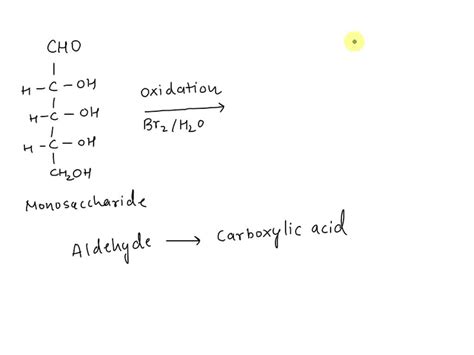 CHO
H - C - OH
H - C - OH
H - C - OH
CH2OH
oxidation
Br2/H2O
Monosaccharide
Aldehyde → Carboxylic acid